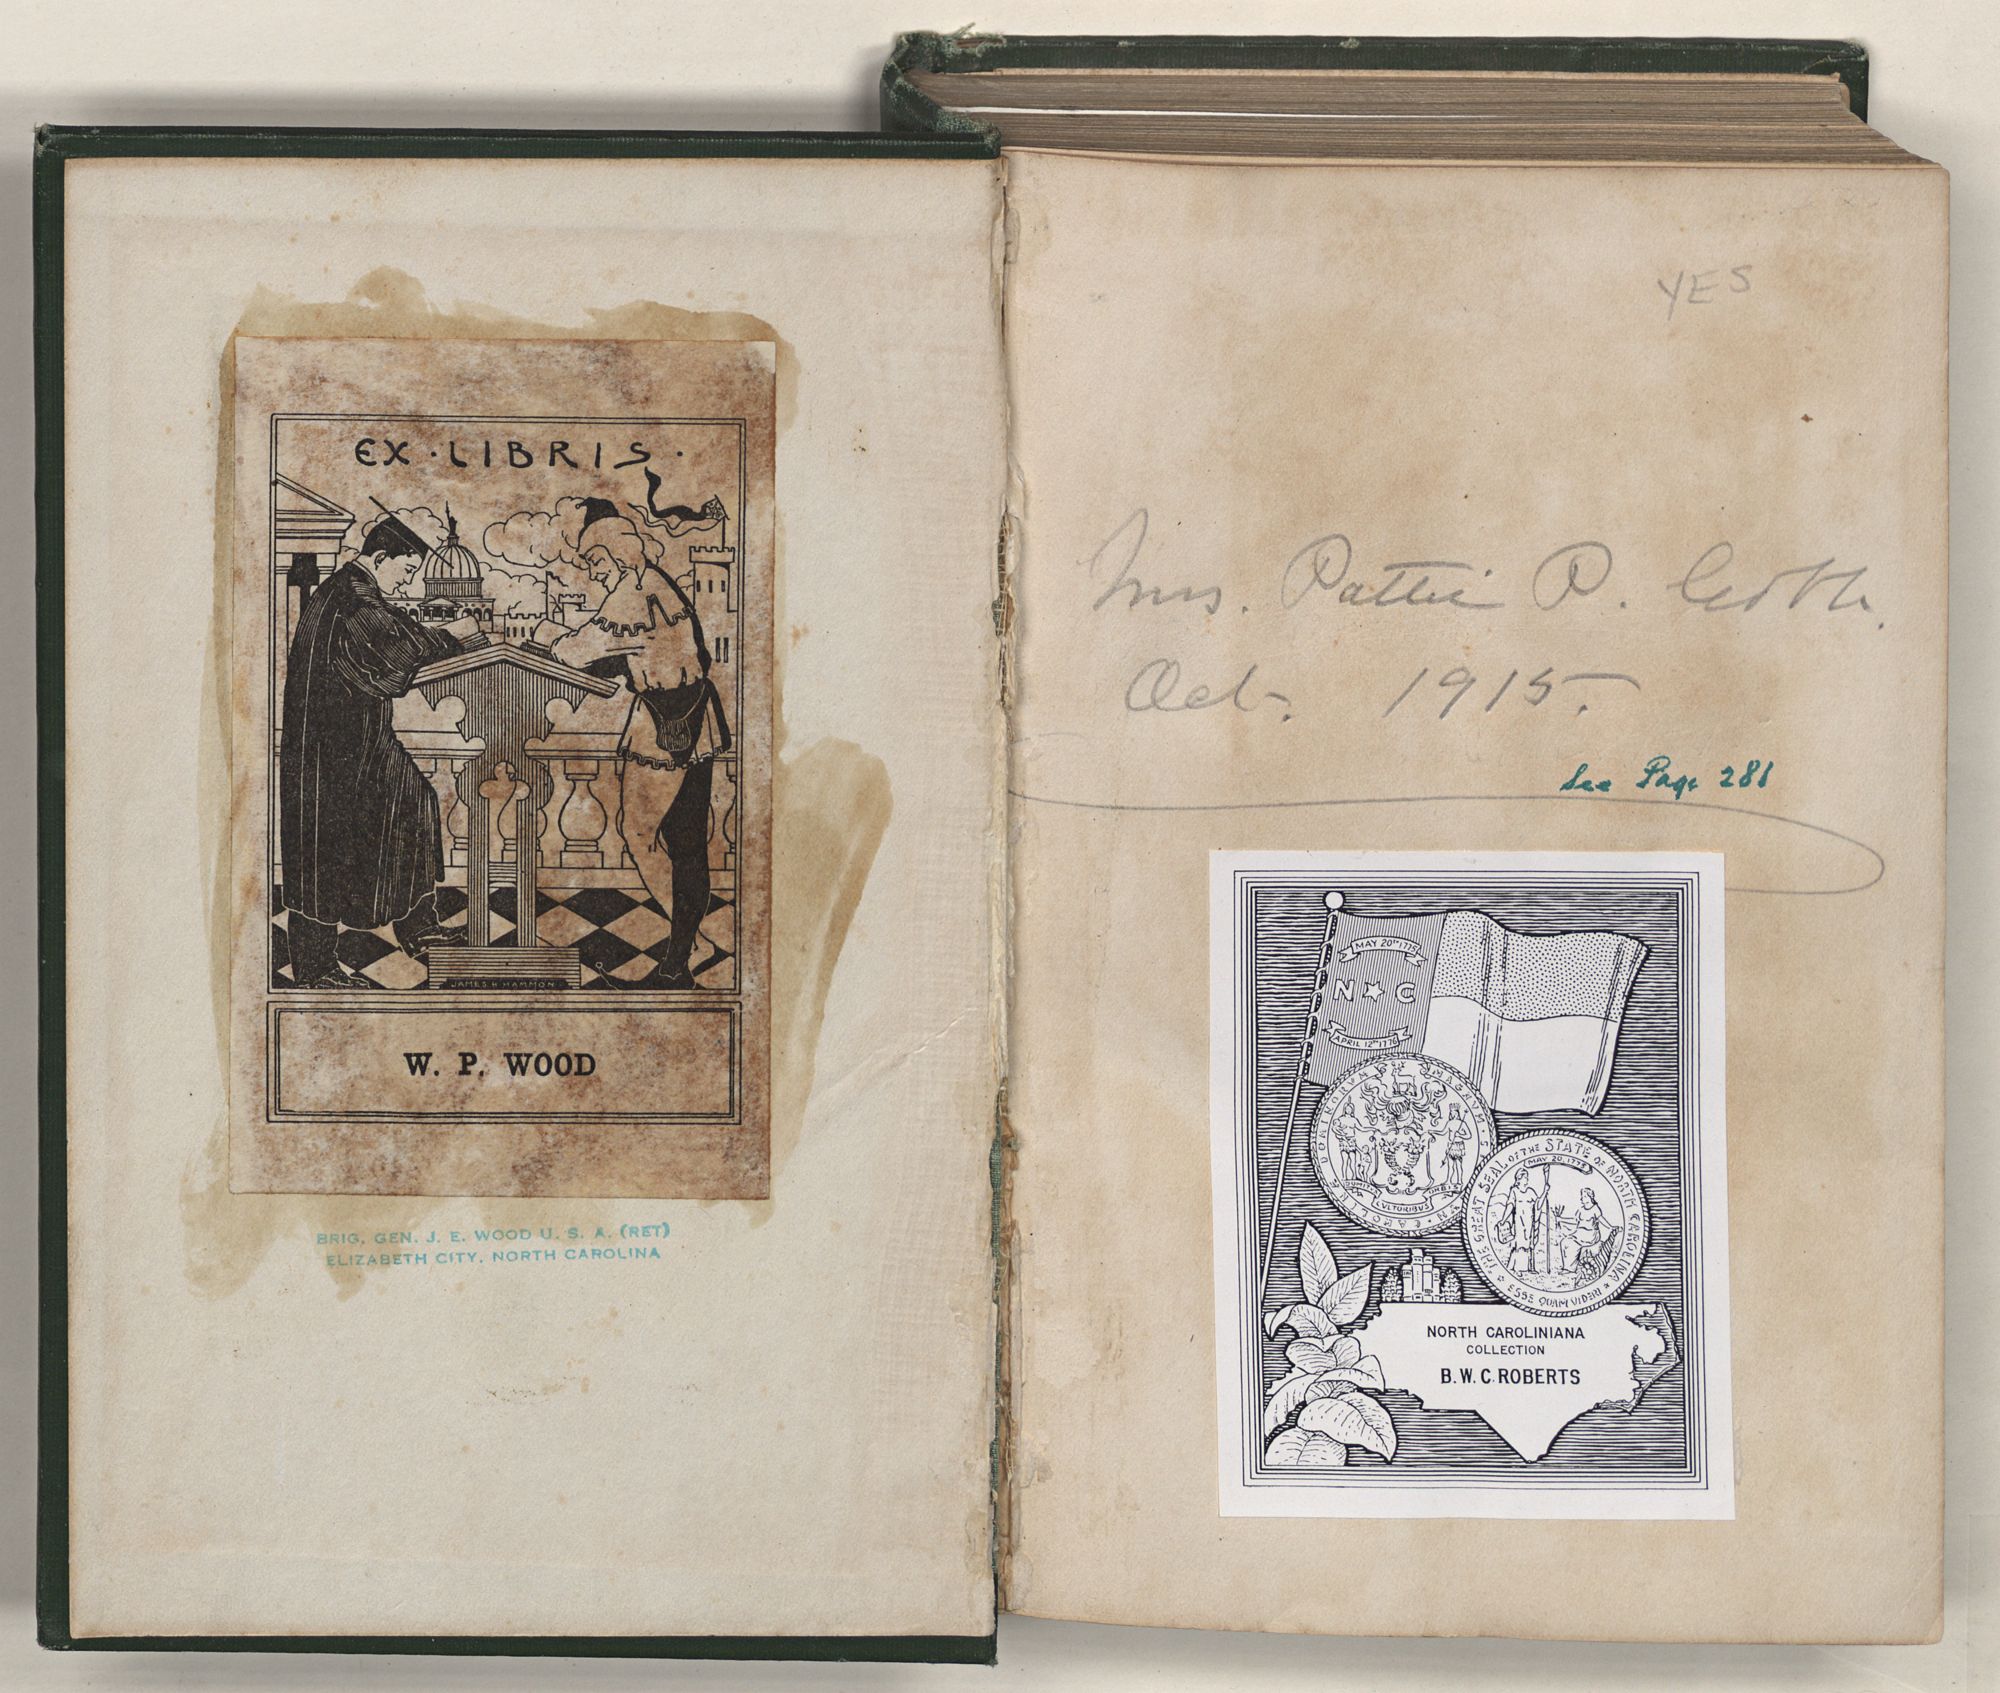 EX · LIBRIS ·
JAMES H HAMMON
W. P. WOOD
BRIG. GEN. J. E. WOOD U. S. A. (RET)
ELIZABETH CITY, NORTH CAROLINA
YES
Mrs. Pattie P.
Oct. 1915.
See Page 281
MAY 20TH 1775
N ★ C
APRIL 12TH 1776
DOMINORUM MAGNUM
CAROLINE
DOMITUS CULTORIBUS ORBIS
THE GREAT SEAL OF THE STATE OF NORTH CAROLINA
MAY 20, 1775
ESSE QUAM VIDERI
NORTH CAROLINIANA
COLLECTION
B. W. C. ROBERTS